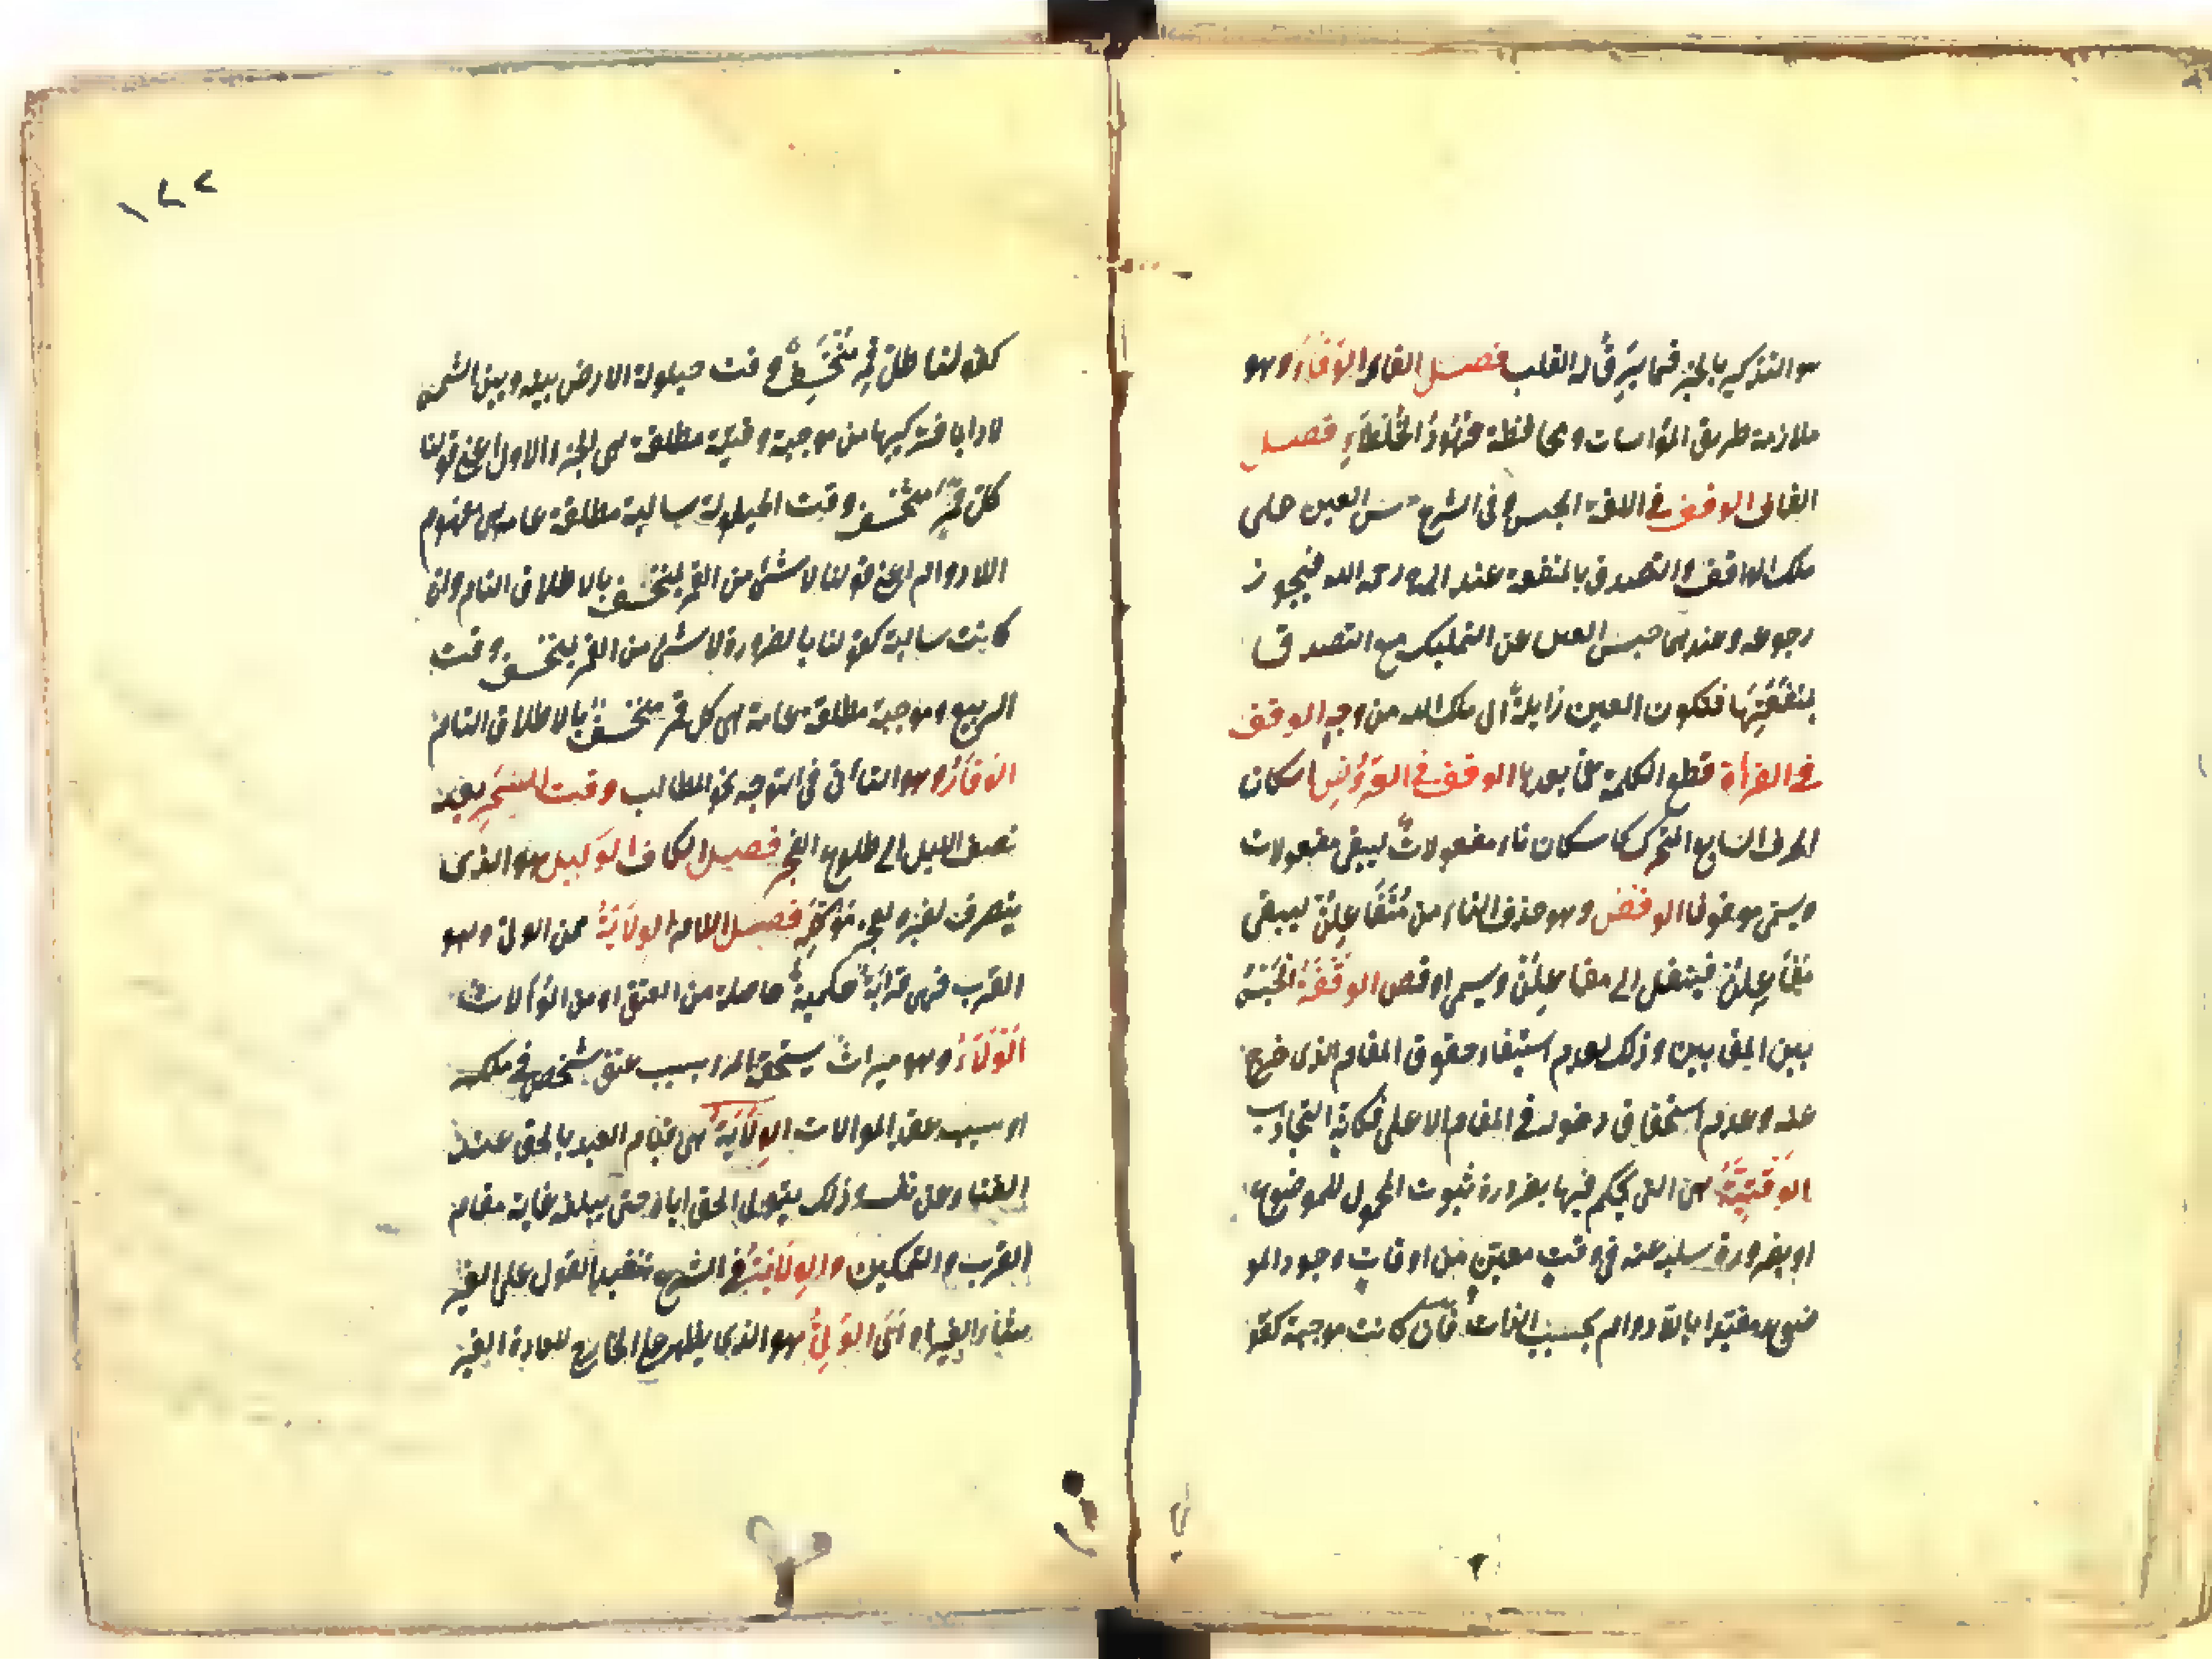 هو التذكير بالخير فيما يَرِقُّ له القلب فصل الفاء الوَفَاءُ وهو
ملازمة طريق المؤاسات ومحافظة عُهُودُ الخُلَطَاءِ فصل
القاف الوقف في اللغة الحبس وفي الشرع حبس العين على
ملك الواقف والتصدق بالمنفعة عند ابى ح رحمه الله فيجوز
رجوعه وعندهما حبس العين عن التمليك مع التصدق
بمنفعتها فتكون العين زايلة الى ملك الله من وجه الوقف
في القرأة قطع الكلمة عما بعدها الوقف في العروض اسكان
الحرف السابع المتحرك كاسكان تاء مفعولات ليبقى مفعولات
ويسمى موقوفا الوقص وهو حذف التاء من مُتَفَاعِلُنْ ليبقى
مُفَاعِلُنْ فينقل الى مفاعلن ويسمى اوقص الوَقْفَةُ الحَبْسُ
بين المقامين وذلك لعدم استيفاء حقوق المقام الذى خرج
عنه وعدم استحقاق دخوله في المقام الاعلى فكانه التجاذب
الوقتية هى التى يحكم فيها بضرورة ثبوت المحمول للموضوع
او بضرورة سلبه عنه في وقت معين من اوقات وجود المو
ضوع مقيدا باللادوام بحسب الذات فان كانت موجبة كقو
كقولنا كل قمر منخسف وقت حيلولة الارض بينه وبين الشمس
لا دايما فتركيبها من موجبة وقتية مطلقة هى الجزء الاول اعنى قولنا
كل قمر منخسف وقت الحيلولة سالبة مطلقة عامة هى مفهوم
اللادوام اعنى قولنا لا شئ من القمر بمنخسف بالاطلاق العام وان
كانت سالبة كقولنا بالضرورة لا شئ من القمر بمنخسف وقت
التربيع وموجبة مطلقة عامة هى كل قمر منخسف بالاطلاق العام
الوَقَارُ وهو التأنى في التوجه نحو المطالب وقت السَّحَر بعيد
نصف الليل الى طلوع الفجر فصل الكاف الوَكيل هو الذى
يتصرف لغيره لعجز مُوَكِّلِه فصل اللام الوِلَايَةُ من الولى وهو
القرب فهى قرابة حكمية حاصلة من العتق او من المُوالات
الوَلَاءُ وهو ميراث يستحقه المرء بسبب عتق شخص في ملكه
او بسبب عقد الموالات الوِلَايَةُ هى قيام العبد بالحق عند
الفناء عن نفسه وذلك بتولى الحق اياه حتى يبلغه غاية مقام
القرب والتمكين والوِلَايَةُ في الشرع تنفيذ القول على الغير
شاء الغير او ابَى الوَلِىُّ هو الذى يظهر على الخارج للعادة الغير
١٢٢